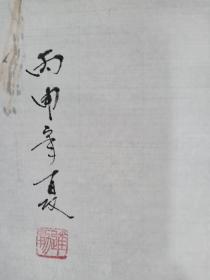 丙申年夏